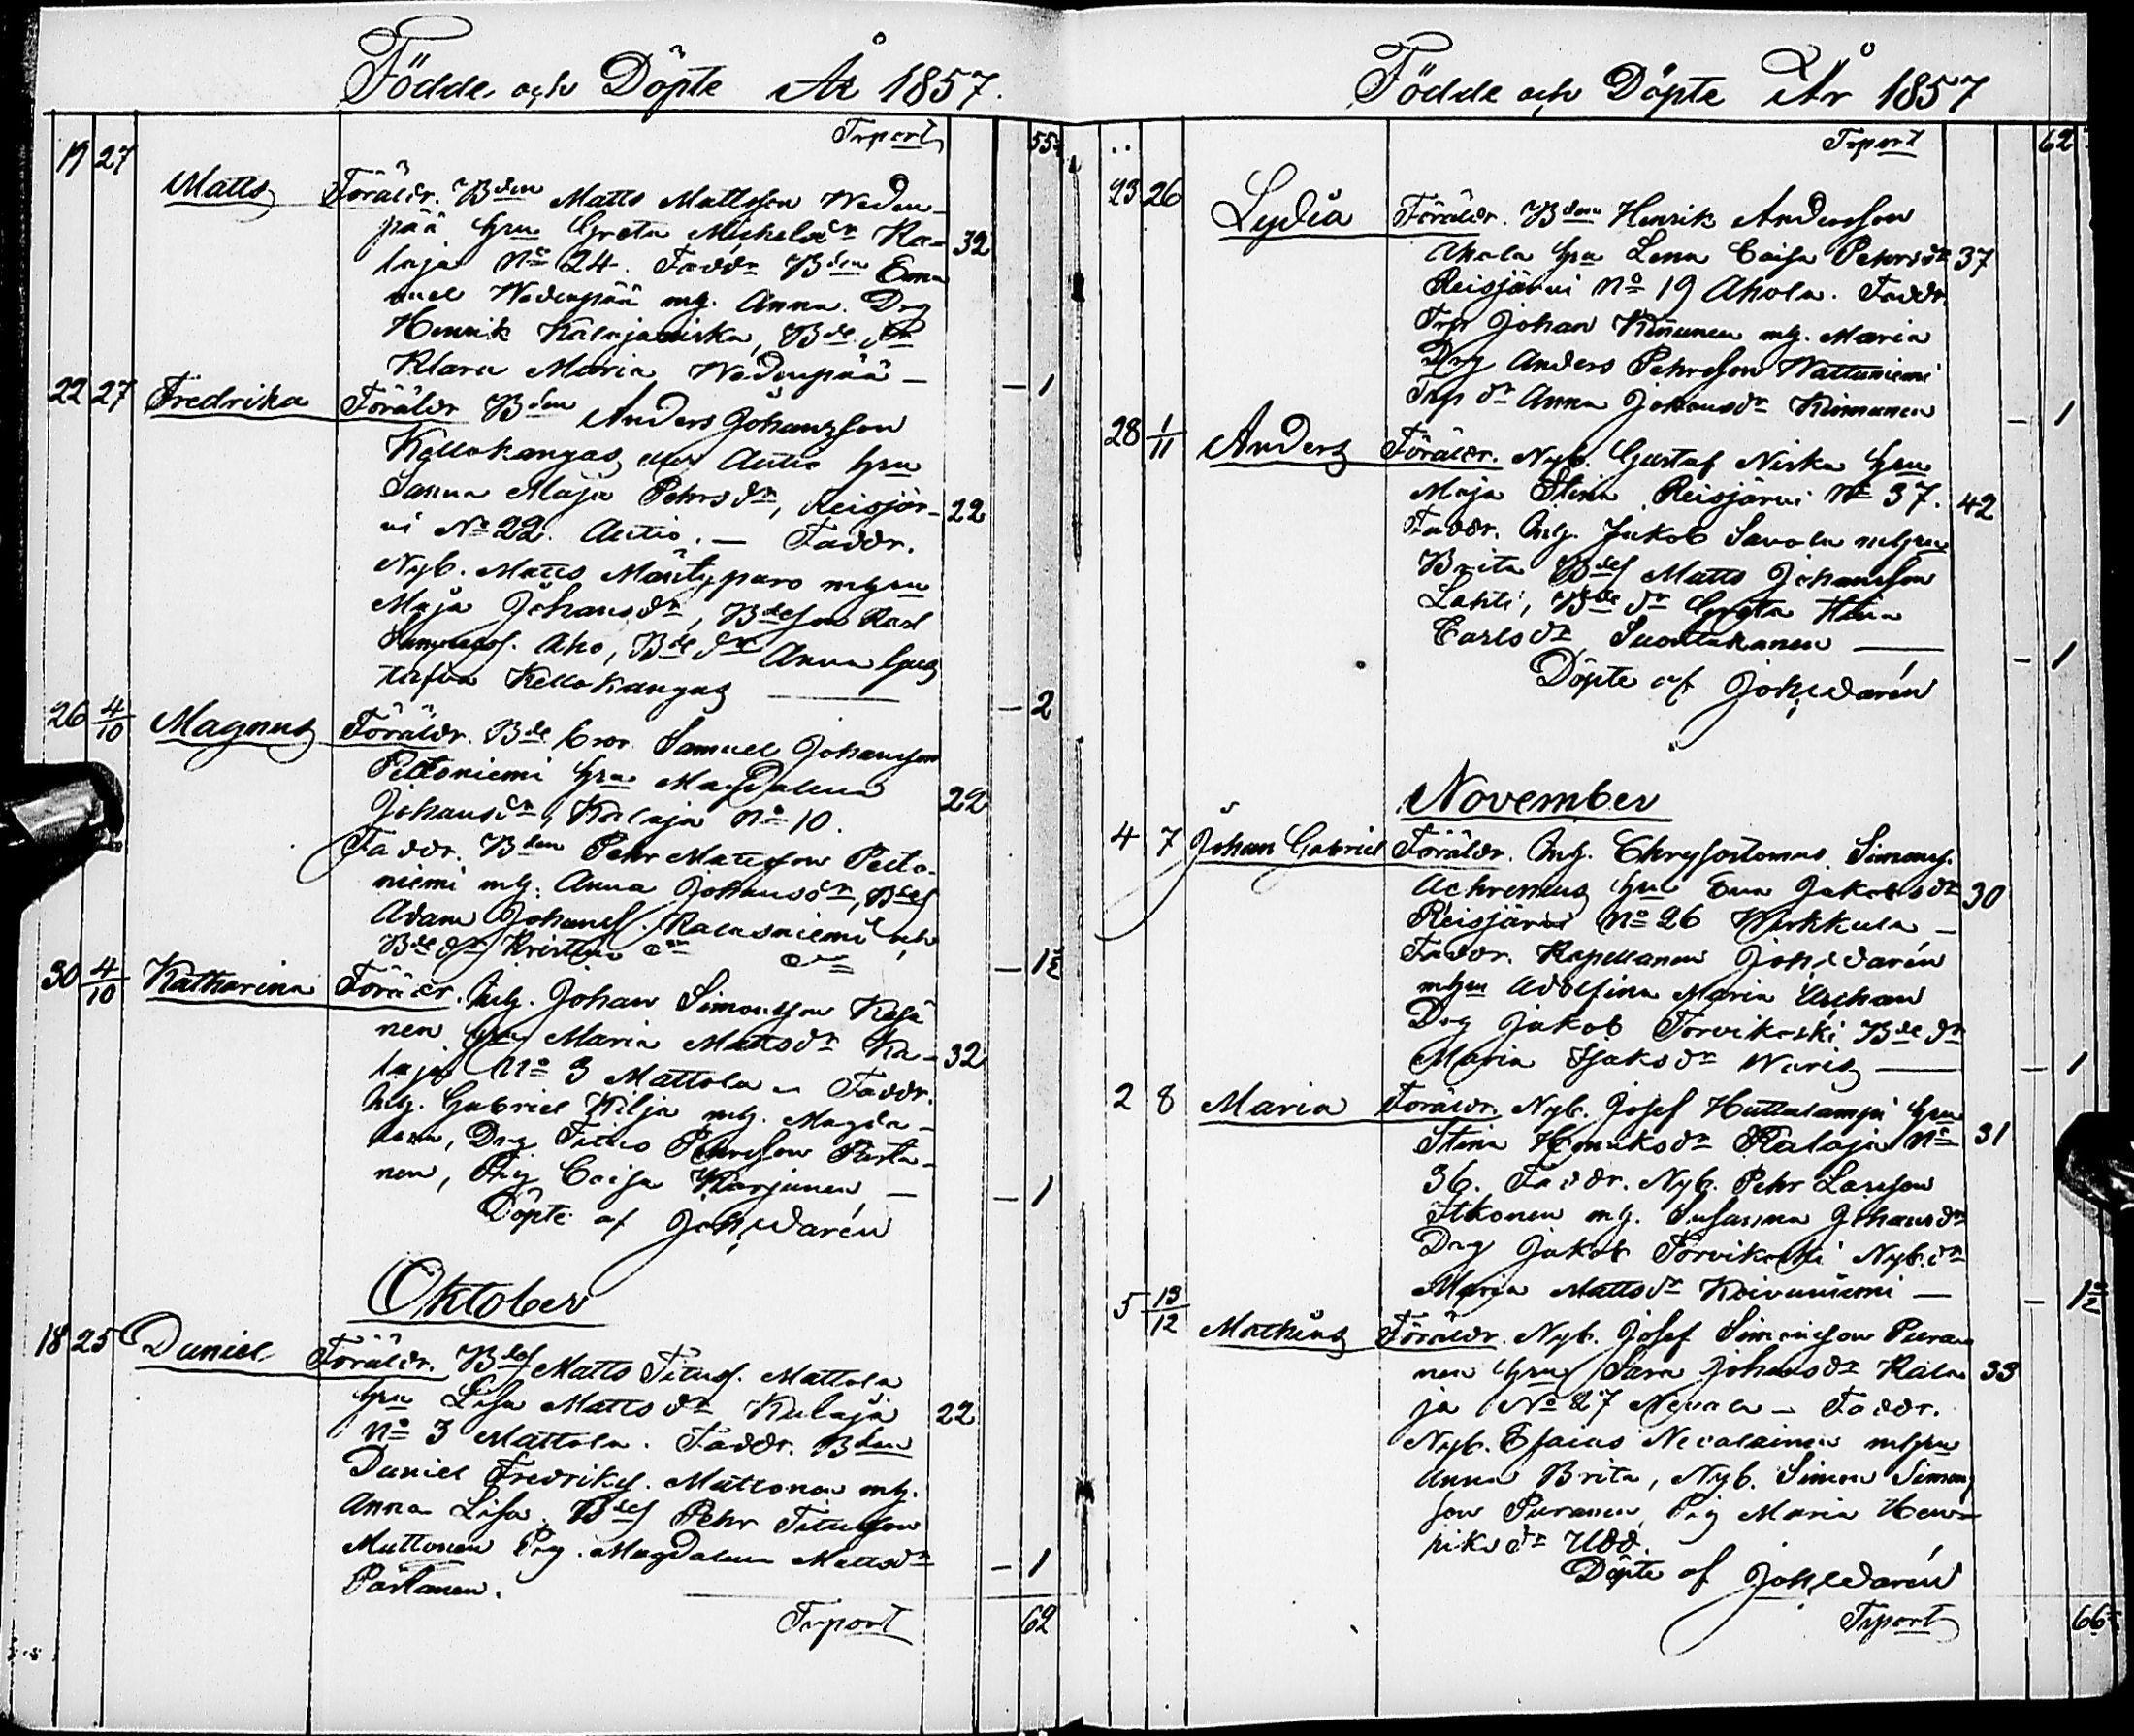 Födde och Döpte År 1857.
Trport 55
19 27
Matts Föräldr. Bden Matts Mattsson Weden-
pää hru Greta Michelsdr Ka- 32
laja No 24. Faddr Bden Ema
nuel Wedenpää mh. Anna. Drg
Henrik Kalajaniska, Bde dr
Klara Maria Wedenpää — — 1
22 27 Fredrika Föräldr Bden Anders Johansson
Kellokangas Autio hru
Sanna Maja Pehrsdr, Reisjär- 22
vi No 22. Autio. — Faddr.
Nyb. Matts Mäntyparo mhru
Maja Johansdr, Bdeson Karl
Aho, Bde dr Anna Gus
tafva Kellokangas — — 2
26 4/10 Magnus Föräldr. Bde bror Samuel Johansson
Peltoniemi hru Magdalena
Johansdr, Kalaja No 10. 22
Faddr. Bden Pehr Mattsson Pelto-
niemi mh. Anna Johansdr, Bdes
Adam Johanss. och
Bde dr Kristina — 1 2
30 4/10 Katharina Föräldr. Inh. Johan Simonsson Kesä
nen hru Maria Mattsdr Ka- 32
laja No 3 Mattola — Faddr.
Inh. Gabriel Kilja mh. Magda-
lena, Drg Titus Pehrsson Parta-
nen, Pig Caisa Karjunen — — 1
Döpte af Joh. Warén
Oktober
18 25 Daniel Föräldr. Bdes Matts Tituss. Mattola
hru Lisa Mattsdr Kalaja 22
No 3 Mattola. Faddr. Bden
Daniel Fredrikss. Muttonen mh.
Anna Lisa, Bdes Pehr Titusson
Muttonen Pig. Magdalena Mattsdr
Partanen. — 1
Trport 62
Födde och Döpte År 1857
Trport 62
23 26
Lydia Föräldr. Bden Henrik Andersson
Ahola hru Lena Caisa Pehrsdr 37
Reisjärvi No 19 Ahola. Faddr.
Trp Johan Kinnunen mh. Maria
Drg Anders Pehrsson Wattuniemi
Trp dr Anna Johansdr Kinnunen — 1
28 1/11 Anders Föräldr. Nyb. Gustaf Niska hru
Maja Stina Reisjärvi No 37. 42
Faddr. Inh. Jakob Savola mhru
Brita Bdes Matts Johansson
Lahti, Bde dr Greta Stina
Carlsdr — — 1
Döpte af Joh. Warén
November
4 7 Johan Gabriel Föräldr. Inh. Chrysostomus Simonss.
Achrenius hru Eva Jakobsdr 30
Reisjärvi No 26 —
Faddr. Kapellanen Joh. Warén
mhru Adolfina Maria
Drg Jakob Torvikoski Bde dr
Maria Isaksdr Waris — — 1
2 8 Maria Föräldr. Nyb. Josef Huttulampi hru
Stina Henriksdr Kalaja No 31
36. Faddr. Nyb. Pehr Larsson
Itkonen mh. Susanna Johansdr
Drg Jakob Torvikoski Nyb. dr
Maria Mattsdr Koivuniemi — — 1 2
5 13/12 Mathias Föräldr. Nyb. Josef Simonsson Pura
nen hru Sara Johansdr Kala 33
ja No 27 Nevala — Faddr.
Nyb. Esaias Nevalainen mhru
Anna Brita, Nyb. Simon Simons
son Puranen, Pig Maria Hen-
riksdr Udd.
Döpte af Joh. Warén
Trport 66